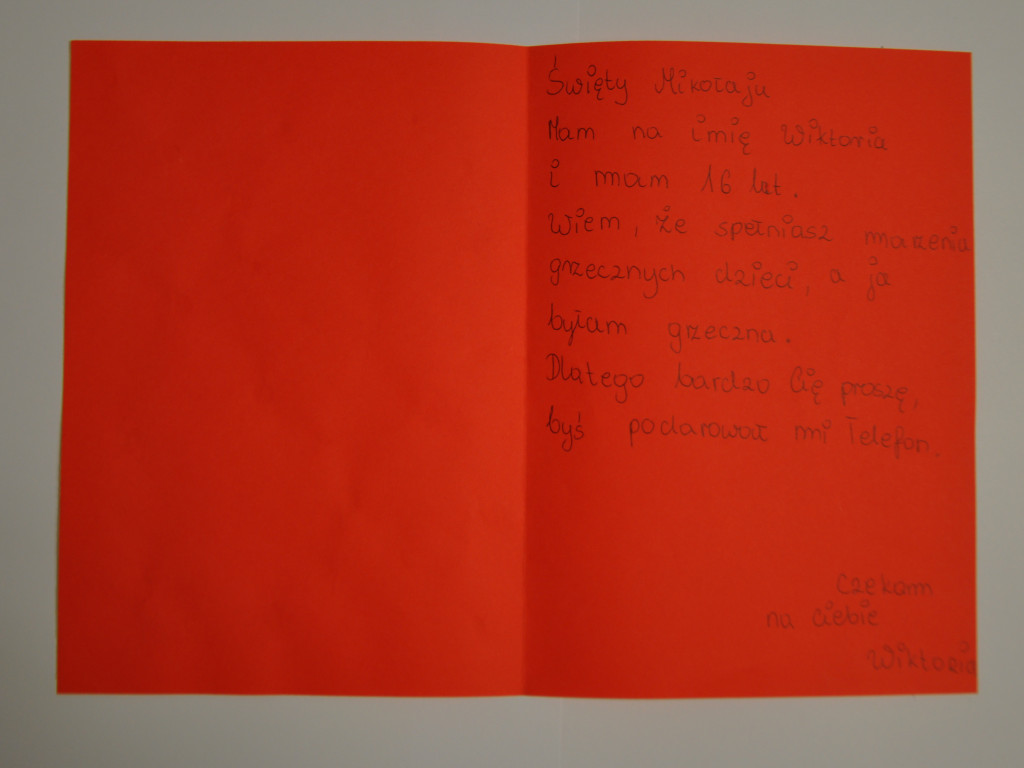 Święty Mikołaju
Mam na imię Wiktoria
i mam 16 lat.
Wiem, że spełniasz marzenia
grzecznych dzieci, a ja
byłam grzeczna.
Dlatego bardzo Cię proszę,
byś podarował mi Telefon.
Czekam
na ciebie
Wiktoria